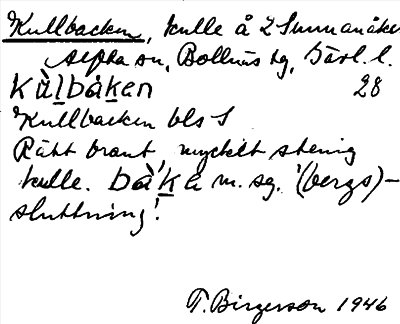 Kullbacken, kulle å 2 Sunnanåker
Alphaon, Bollnäs sg, Gävl. l.
kùlbàken 28
Kullbacken bls 1
Rätt brant, mycket stenig
kulle. bàke m. sg. '(bergs)-
sluttning'.
T. Birgerson 1946